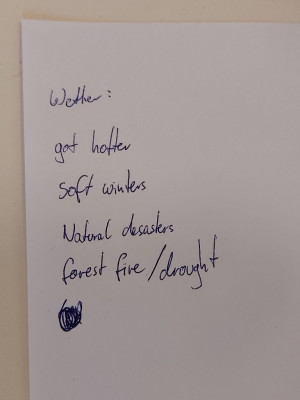 Wether:
got hotter
Soft winters
Natural desasters
forest fire/drought